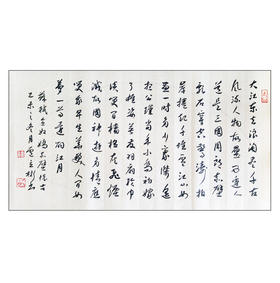 大江东去浪淘尽千古
风流人物故垒西边人
道是三国周郎赤壁
乱石穿空惊涛拍
岸卷起千堆雪江山如
画一时多少豪杰遥
想公瑾当年小乔初嫁
了雄姿英发羽扇纶巾
谈笑间樯橹灰飞烟
灭故国神游多情应
笑我早生华发人间如
梦一尊还酹江月
苏轼念奴娇赤壁怀古
乙未之冬月